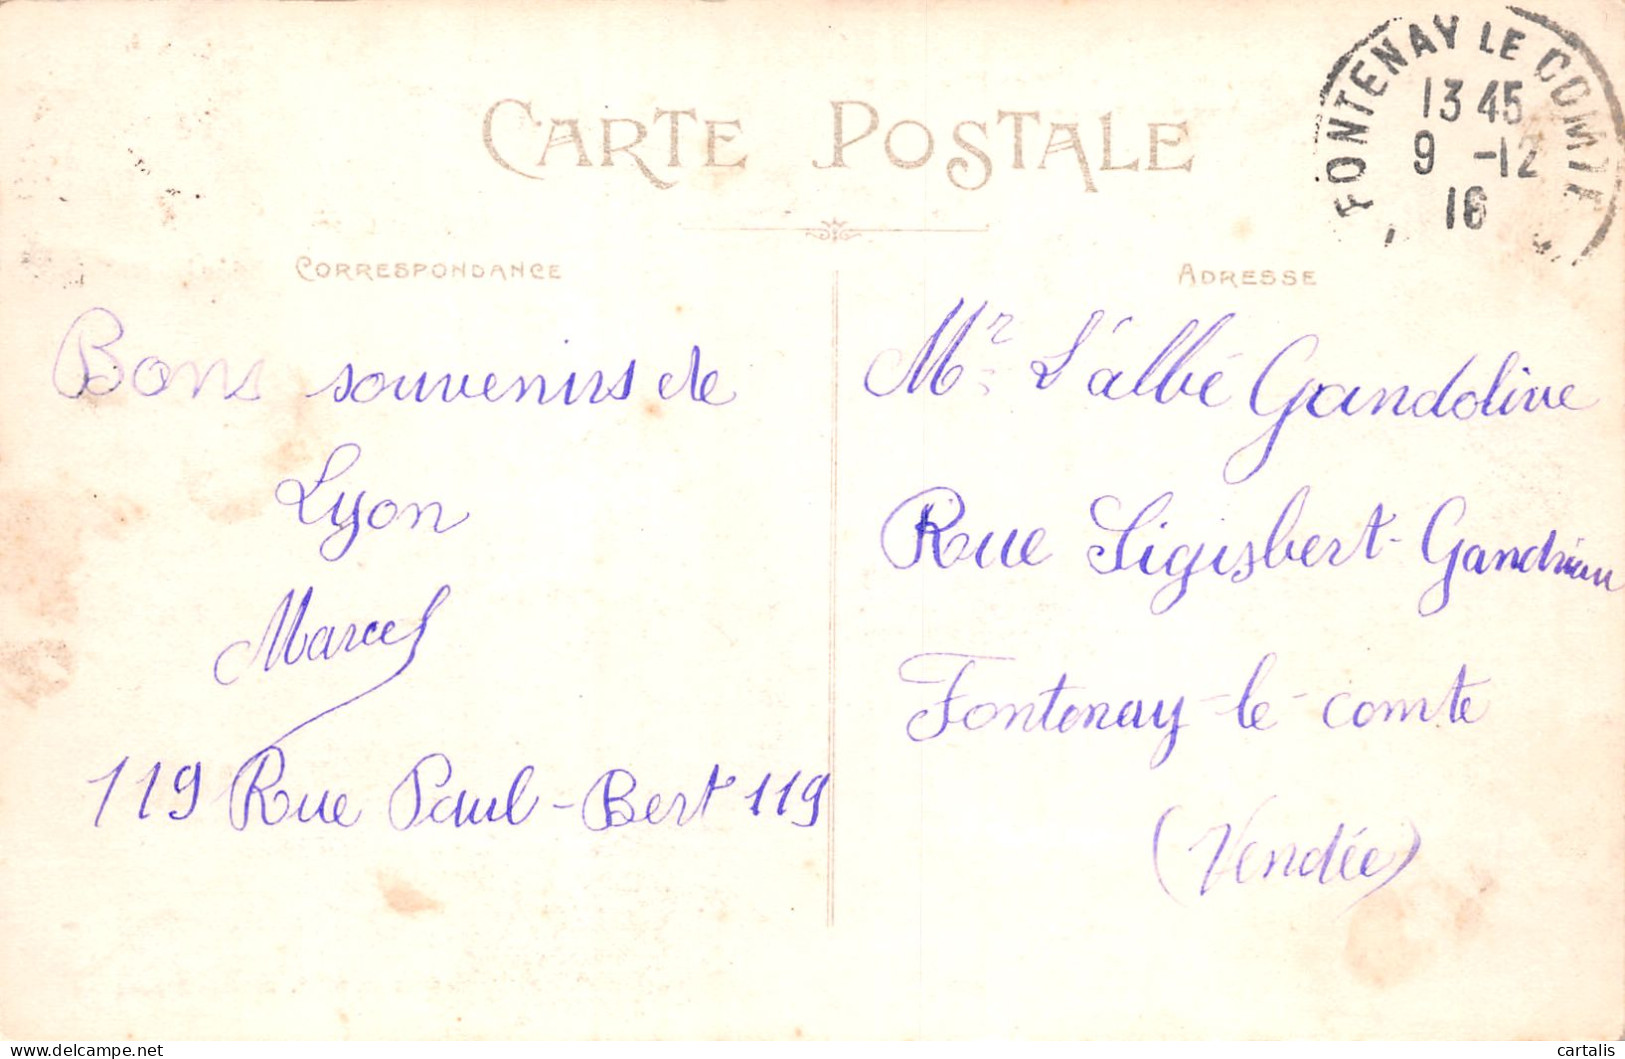 CARTE POSTALE
FONTENAY LE COMTE
13 45
9 -12
16
CORRESPONDANCE
Bons souvenirs de
Lyon
Marcel
119 Rue Paul-Bert 119
ADRESSE
Mr L'abbé Gandolive
Rue Sigisbert-
Fontenay-le-comte
(Vendée)
delcampe.net
cartalis